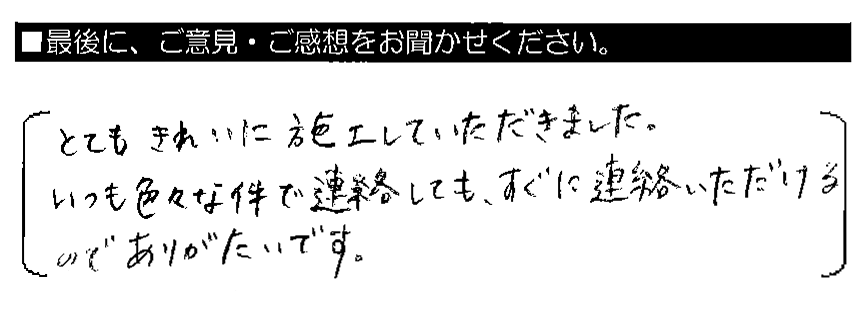 ■最後に、ご意見・ご感想をお聞かせください。
とても きれいに 施工していただきました。
いつも色々な件で連絡しても、すぐに連絡いただける
のでありがたいです。